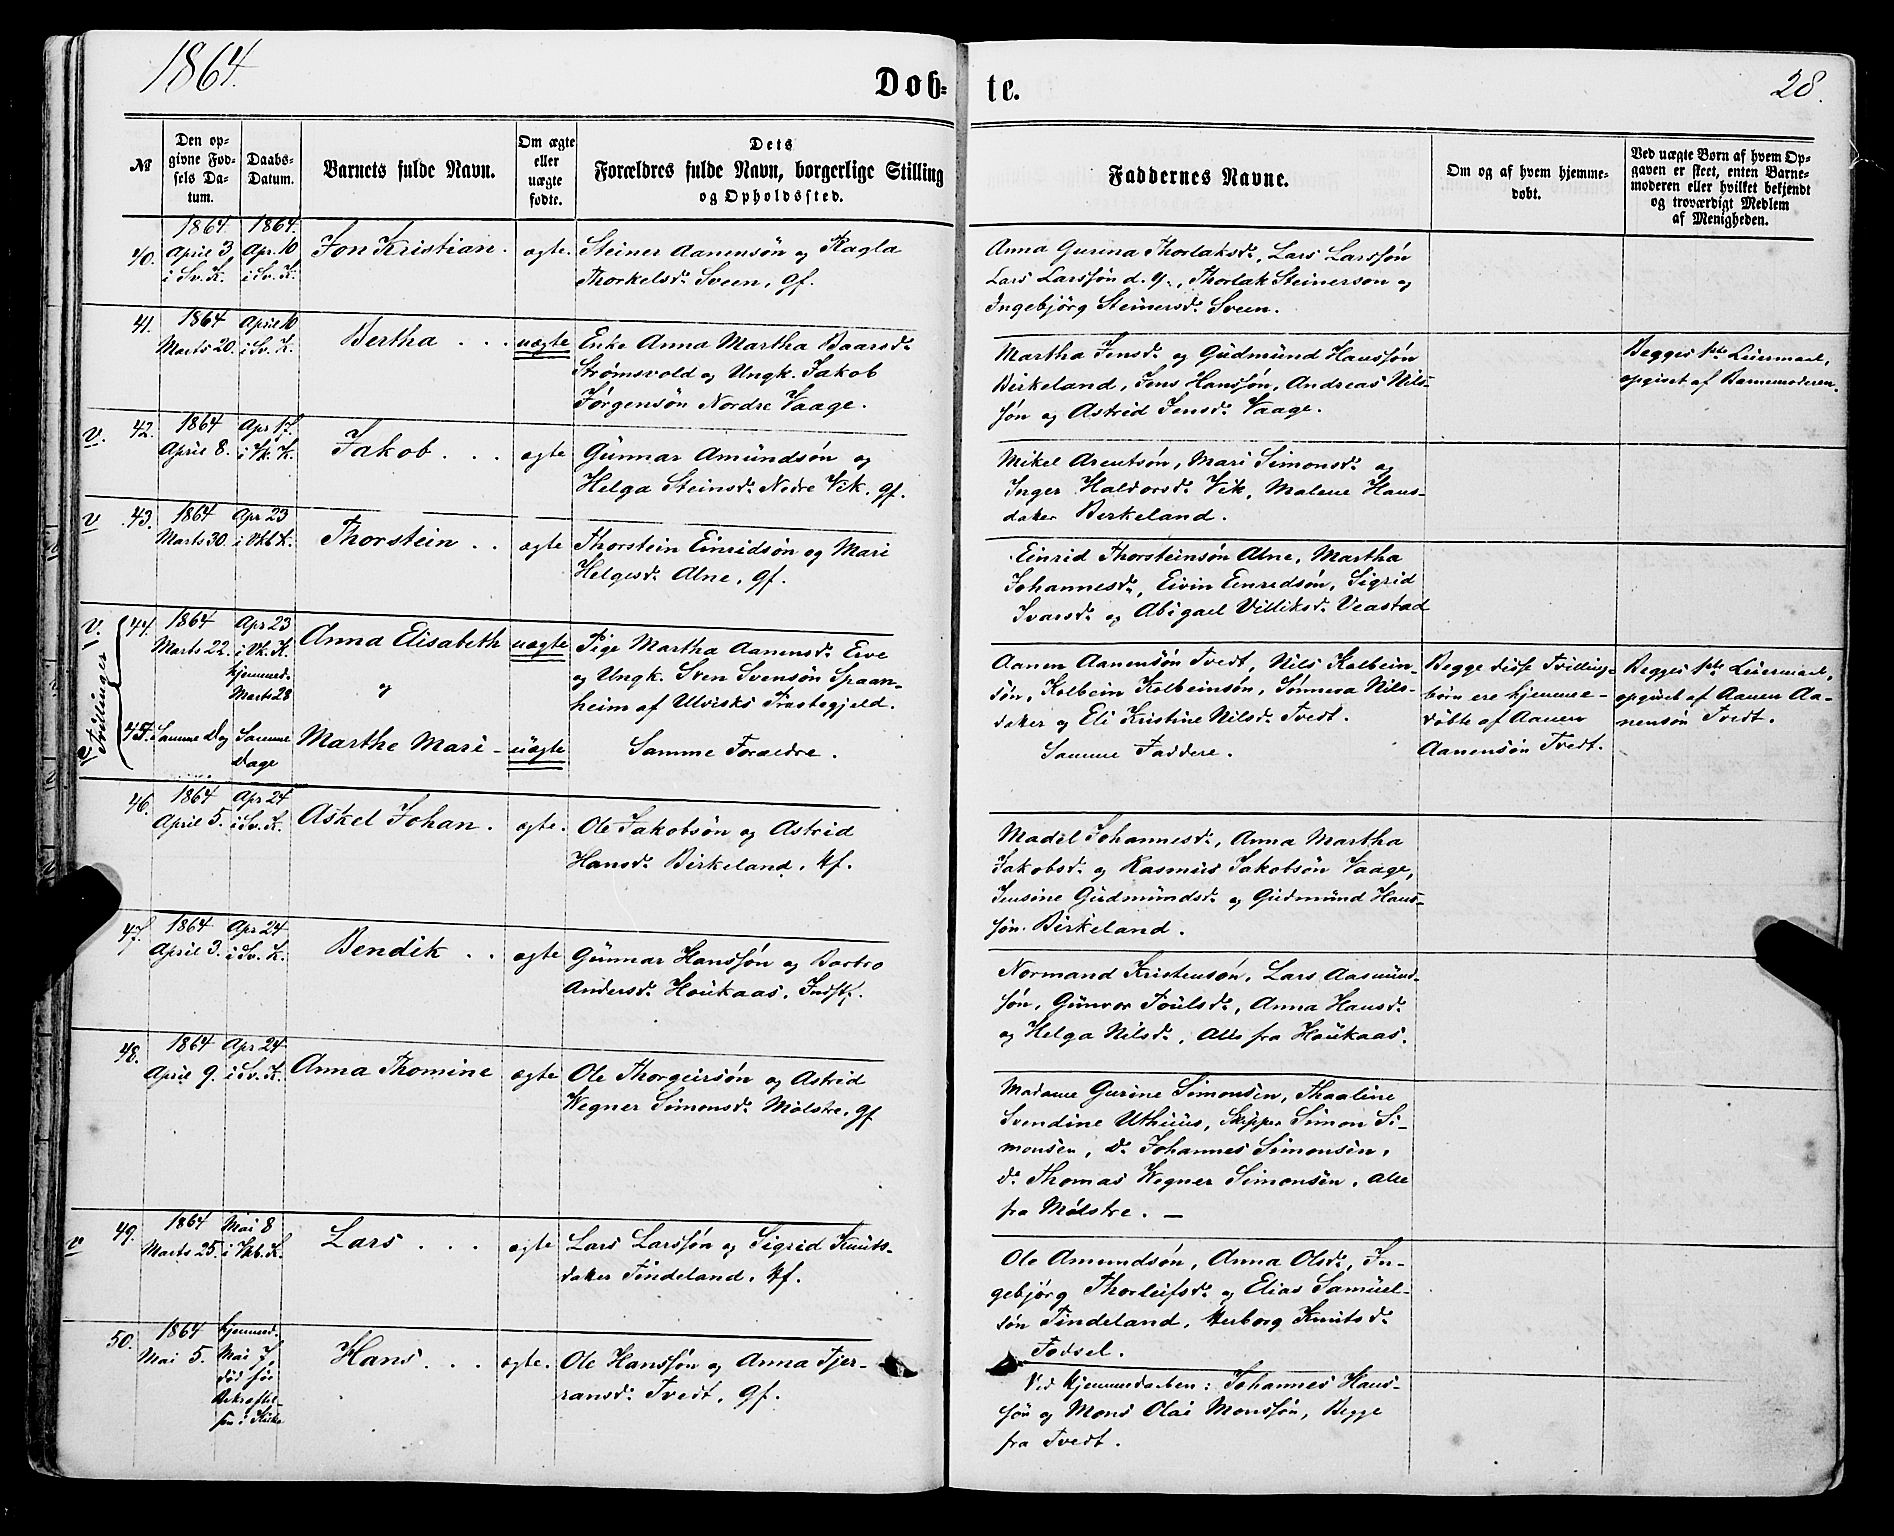 1864.
Døb-
te.
28.
№
Den op-
givne Fød-
sels Da-
tum.
Daabs-
Datum.
Barnets fulde Navn.
Om ægte
eller
uægte
fødte.
Dets
Forældres fulde Navn, borgerlige Stilling
og Opholdssted.
Faddernes Navne.
Om og af hvem hjemme-
døbt.
Ved uægte Børn af hvem Op-
gaven er skeet, enten Barne-
moderen eller hvilket bekjendt
og troværdigt Medlem
af Menigheden.
40.
1864.
April 3,
i Sv. K.
1864.
Apr. 10
i Sv. K.
Jon Kristian.
ægte.
Steiner Aanensøn og Ragla
Thorkelsd. Sveen, gf.
Anna Gurina Thorlaksd., Lars Larssøn
Lars Larssøn d. y., Thorlak Steinerson og
Ingebjörg Steinersd. Sveen.
41.
1864
Marts 20.
April 10
i Sv. K.
Bertha . . .
uægte
Enke Anna Martha Baarsd.
Strømsvold og Ungk. Jakob
Jørgensøn Nordre Vaage.
Martha Jensd. og Gudmund Hanssøn
Birkeland, Jens Hanssøn, Andreas Nils-
søn og Astrid Jensd. Vaage.
Begges 1ste Leiermaal,
opgivet af Barnemoderen.
v.
42.
1864
April 8.
Apr 17.
i Vk. K.
Jakob . . .
ægte
Gunnar Amundsøn og
Helga Steinsd. Nedre Vik, gf.
Mikel Arentsøn, Mari Simonsd. og
Inger Haldorsd. Vik, Malene Hans-
datter Birkeland.
v
43.
1864
Marts 30.
Apr 23
i Vkb K.
Thorstein . .
ægte
Thorstein Einridsøn og Mari
Helgesd. Alne, gf.
Einrid Thorsteinsøn Alne, Martha
Johannesd., Eivin Einridsøn, Sigrid
Ivarsd. og Abigael Villiksd. Veastad
v.
Tvillinger
44.
1864
Marts 22.
Apr 23
i Vk. K.
hjemmed.
Marts 28
Anna Elisabeth
og
uægte
Pige Martha Aanensd. Erve
og Ungk. Sven Svensøn Spaan-
heim af Ulviks Præstegjeld.
Aanen Aanensøn Tvedt, Nils Kolbein-
søn, Kolbein Kolbeinsøn, Sønneva Nils-
datter og Eli Kristine Nilsd. Tvedt.
Begge disse Tvilling-
børn ere hjemme-
døbte af Aanen
Aanensøn Tvedt.
Begges 1ste Leiermaal,
opgivet af Aanen Aa-
nensøn Tvedt.
45.
Samme Dag
Samme
Dage
Marthe Mari -
uægte
Samme Forældre.
Samme Faddere.
46.
1864
April 5.
Apr 24
i Sv. K.
Askel Johan.
ægte.
Ole Jakobsøn og Astrid
Hansd. Birkeland, kf.
Madel Johannesd., Anna Martha
Jakobsd. og Rasmus Jakobsøn Vaage,
Jensine Gudmundsd. og Gudmund Hans-
søn Birkeland.
47.
1864
April 3.
Apr 24
i Sv. K.
Bendik . .
ægte
Gunnar Hanssøn og Barbro
Andersd. Houkaas, Indst.
Normand Kristensøn, Lars Aasmund-
søn, Gunvor Poulsd., Anna Hansd.
og Helga Nilsd., Alle fra Houkaas.
48.
1864
April 9.
Apr 24
i Sv. K.
Anna Thomine
ægte
Ole Thorgeirsøn og Astrid
Wegner Simonsd. Mølstre, gf
Madame Gurine Simonsen, Thaaline
Svendine Uthuus, Skipper Simon Si-
monsen, Do Johannes Simonsen,
do Thomas Wegner Simonsen, Alle
fra Mølstre. —
v
49.
1864
Marts 25.
Mai 8
i Vkb. K.
Lars . . .
ægte
Lars Larssøn og Sigrid Knuts-
datter Tindeland, kf.
Ole Amundsøn, Anna Olsd., In-
gebjörg Thorleifsd. og Elias Samuel-
søn Tindeland, Herborg Knutsd.
Fodsel.
50.
1864
Mai 5.
hjemmed.
Mai 7,
död før
Bekræftel-
sen i Kirke
Hans . . .
ægte.
Ole Hanssøn og Anna Tjer-
ransd. Tvedt, gf.
Ved hjemmedaaben: Johannes Hans-
søn og Mons Olai Monssøn, Begge
fra Tvedt.